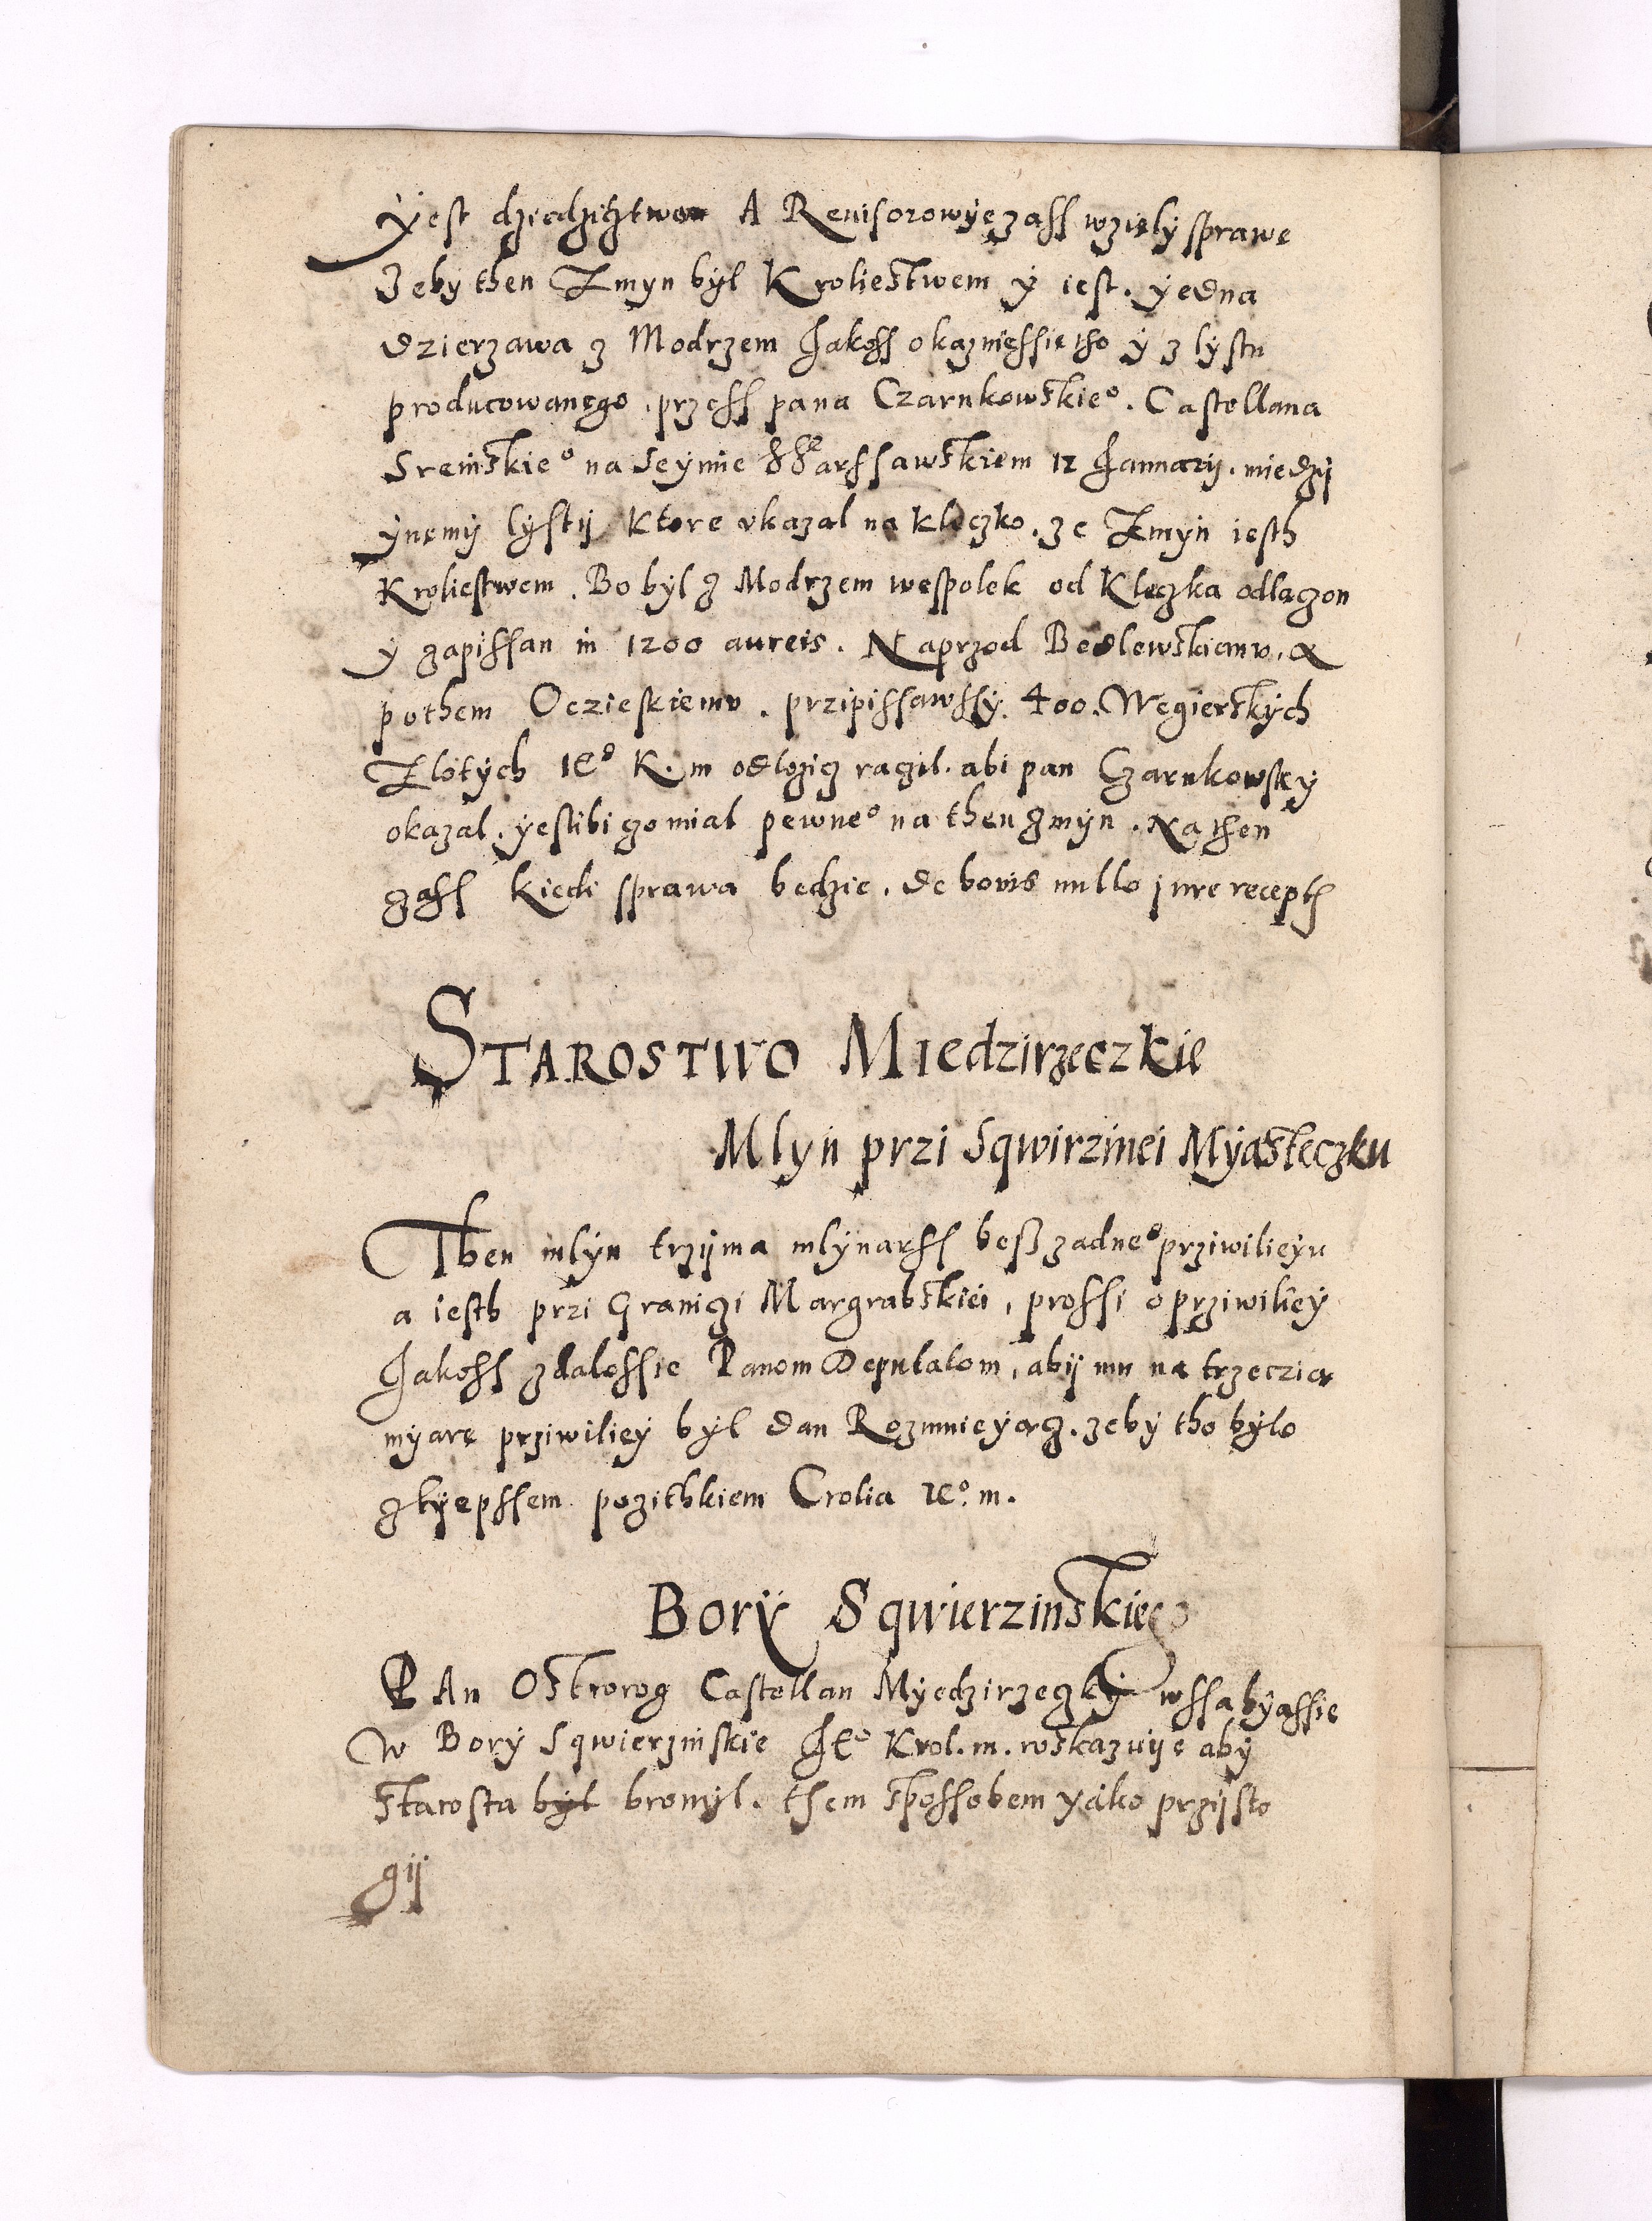 Yest dziedzicztwem A Reuisorowye zass wzięly sprawę
Zeby then Zmyn był Kroliestwem y iest. yedna
dzierzawa z Modrzem Jakoss okazuiessie tho y z lystu
producowanego. przess pana Czarnkowskieº. Castellana
Sremskieº na Seymie Warssawskiem 12 Januarij. miedzy
ynemy lysty ktore ukazal na kleczko. ze Zmyn iesth
Kroliestwem. Bo był z Modrzem wespolek od Kleczka odlączon
y zapissan in 1200 aureis. Naprzod Bedlewskiemu. A
pothem Oczieskiemu. przipissawssy. 400. Węgierskych
Zlotych Ieº K. m odlozicz raczil. abi pan Czarnkowsky
okazal. yestibi czo mial pewneº na then Zmyn. Na then
czass kiedi sprawa będzie. de bonis nullo jure recept
STAROSTWO Miedzirzeczkie
Mlyn przi Sqwirzinei Myasteczku
Then mlyn trzyma mlynarss bess zadneº prziwilieyu
a iesth przi Graniczi Margrabskiei, prossi o prziwiliey
Jakoss zdalossie Panom Deputatom, aby mu na trzeczią
myarę prziwiliey był dan Rozumieyącz. zeby tho było
z lyepssem pozithkiem Crolia Ieº. m.
Bory Sqwierzinskiego
PAn Ostrorog Castellan Myedzirzeczky wssabyassie
w Bory Sqwierzinskie Jeº Krol. m. wskazuye aby
starosta był bronyl. them spossobem yako przysto
gij